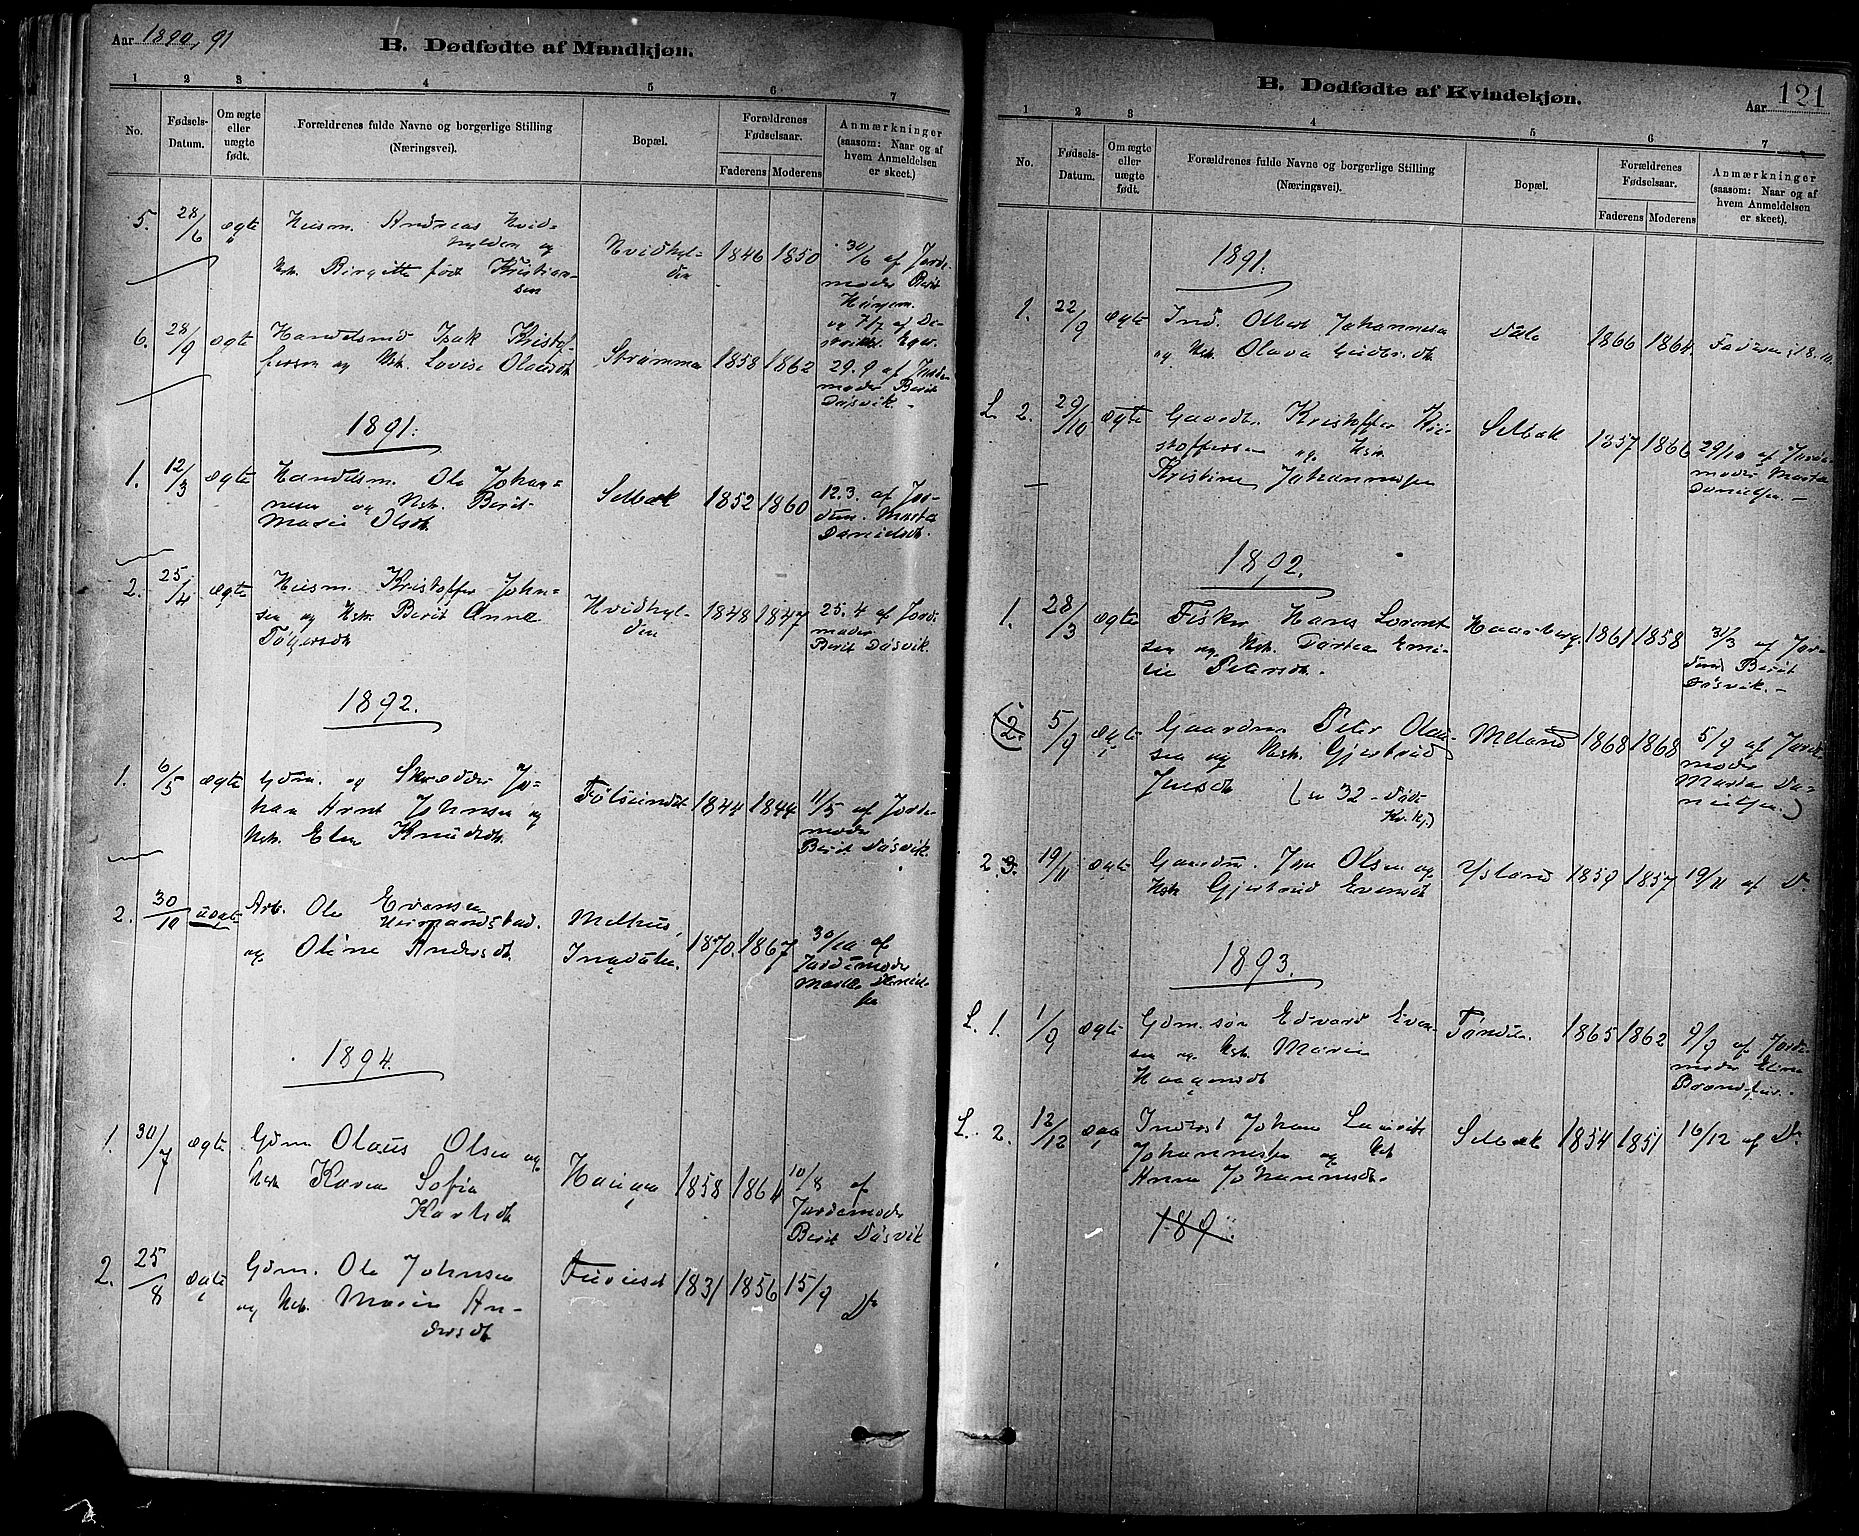 Aar 1890, 91
B. Dødfødte af Mandkjøn.
1 2 3 4 5 6 7
No.
Fødsels-Datum.
Om ægte eller uægte født.
Forældrenes fulde Navne og borgerlige Stilling
(Næringsvei).
Bopæl.
Forældrenes Fødselsaar.
Faderens Moderens
Anmærkninger
(saasom: Naar og af
hvem Anmeldelsen
er skeet.)
5. 28/6 ægte Husm. Andreas Hvid-
hylden og
Hst. Birgitte født Kristian-
sen
Hvidhyl-
den
1846 1850
30/6 af Jorde-
moder Berit
6. 28/9 ægte Handelsmd Isak Kristof-
fersen og Hst. Lovise Olausdt
Strømmen
1858 1862
29.9 af Jorde-
moder Berit
Døsvik
1891.
1. 12/3 ægte Handelsm. Ole Johan-
nesen og Hst. Berit
Marie Olsdt.
Selbæk
1852 1860
12.3. af Jor-
dem. Marta
Danielsdt.
2. 25/4 ægte Husm. Kristoffer John-
sen og Hst. Berit Anna
Tøgersdt
Hvidhyl-
den
1848 1847
25.4 af Jorde-
moder
Berit Døsvik.
1892.
1. 6/5 ægte Gdm. og Skrædder Jo-
han Arnt Johnsen og
Hst. Elen Knudsdt.
Følsundet
1844 1844
11/5 af Jorde-
moder
Berit Døsvik.
2. 30/10 uægte Arb. Ole Evensen
og Oline Andersdt.
Melhus,
1870. 1867
30/10 af
Jordemoder
Marta Daniel-
sen
1894.
1. 30/7 ægte Gdm. Olaus Olsen og
Hst. Karen Sofia
Karlsdt
Haugen
1858 1864
10/8 af
Jordemoder
Berit Døsvik
2. 25/8 ægte Gdm. Ole Johnsen
og Hst. Marie An-
dersdt
1831 1856
15/9 Do
B. Dødfødte af Kvindekjøn.
Aar 121
1 2 3 4 5 6 7
No.
Fødsels-Datum.
Om ægte eller uægte født.
Forældrenes fulde Navne og borgerlige Stilling
(Næringsvei).
Bopæl.
Forældrenes Fødselsaar.
Faderens Moderens
Anmærkninger
(saasom: Naar og af
hvem Anmeldelsen
er skeet.)
1891.
1. 22/9 ægte Ind. Olbert Johannesen
og Hst. Olava
Dale
1866 1864
Faderen 18.10
L. 2. 29/10 ægte Gaardbr. Kristoffer Kri-
stoffersen og Hst.
Kristine Johannessen
Selbæk
1857 1866
29/10 af Jorde-
moder Marta
Danielsen.
1892.
1. 28/3 ægte Fisker Hans Lorent-
sen og Hst. Dortea Emi-
lie Petersdt.
Haarberg
1861 1858
31/3 af Jor-
dem Berit
Døsvik.
(2. 5/9 ægte Gaardm. Peter Olau-
sen og Hst. Gjertrud
Jensdt (n 32 - Døde
Kv.kj)
Meland
1868 1868
5/9 af Jorde-
moder
Marta Da-
nielsen.)
2. 3. 19/11 ægte Gaardm. Jon Olsen og
Hst. Gjertrud Evensdt
Ysland
1859 1857
19/11 af Do.
1893.
L. 1. 1/9 ægte Gdm.søn Edvard Even-
sen og Hst. Marie
Haagensdt
1865 1862
9/9 af Jorde-
moder
L. 2. 12/12 ægte Inderst Johan Laurits
Johannesen og Hst
Anna Johannesdt.
Selbæk
1854 1851
16/12 af Do
189